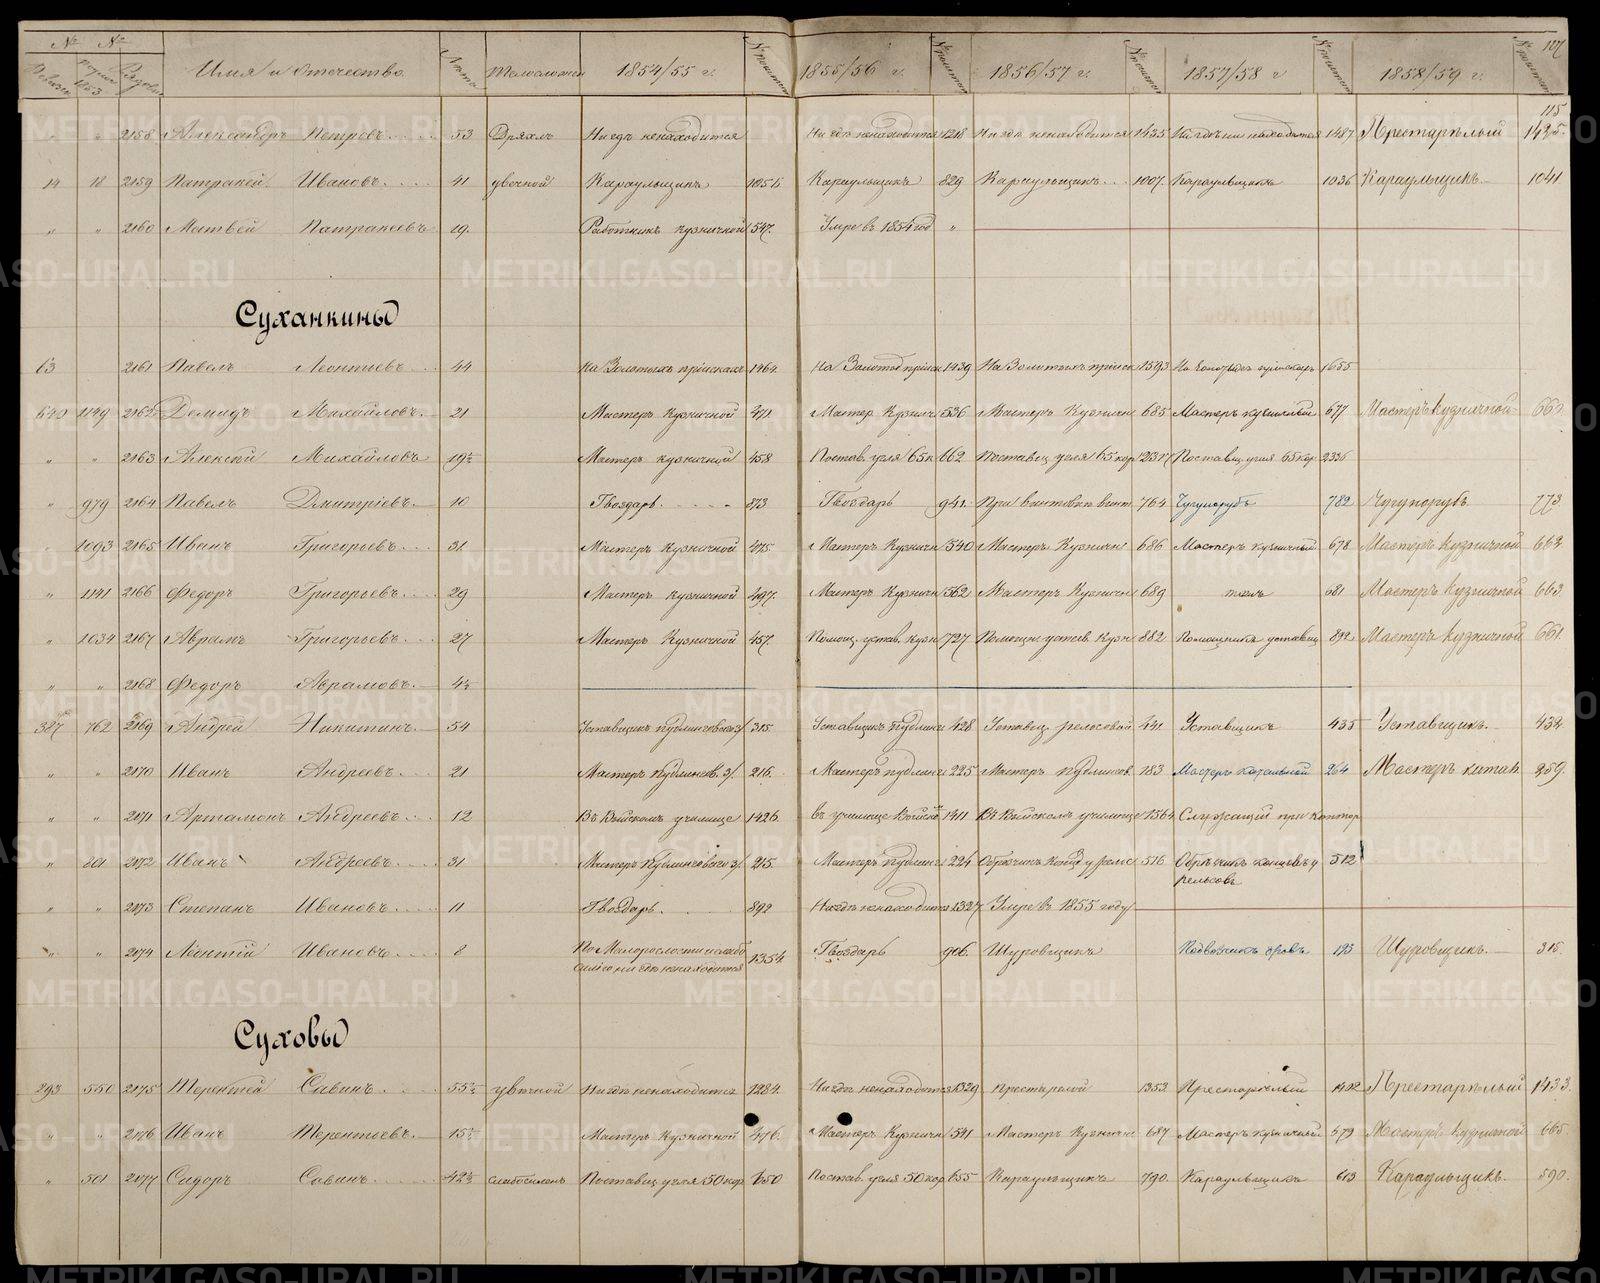 № № Имя и Отечество Лѣта Тѣлосложен 1854/55 г. 1855/56 г. 1856/57 г. 1857/58 г 1858/59 г. 127
1853
115
" " 2158 Александръ Петровъ 53 Дряхлъ Нигдѣ ненаходится Нигдѣ ненаходится 1218 Нигдѣ ненаходится 1435 1487 Престарѣлый
14 18 2159 Патракей Ивановъ 41 увѣчной Караульщикъ 1056 Караульщикъ 829 Караульщикъ 1007. Караульщикъ 1036 Караульщикъ 1041
" " 2160 Матвей Патракеевъ 19. Работникъ кузничной 547. Умре въ 1854 год "
Суханкины
63 2161 Павелъ Леонтьевъ 44 На Золотыхъ пріискахъ 1464. На Золотых пріиск 1439 На Золотыхъ пріиск 1593 На золотыхъ пріискахъ 1655
640 1149 2162 Демидъ Михайловъ. 21 Мастеръ Кузничной 471 Мастер Кузнич 536 Мастеръ Кузничн 685 Мастеръ кузничный 677 Мастеръ кузничной 662
" " 2163 Алексѣй Михайловъ 19½ Мастеръ кузничной 458 Постав. угля 65 к 662 Поставщ угля 65 кор 1237 Поставщ. угля 65 кор 2336
" 979 2164 Павелъ Дмитріевъ 10 Гвоздарь 873 Гвоздарь 941. 764 Чугунорубъ 782 Чугунорубъ 773.
" 1093 2165 Иванъ Григорьевъ 31 Мастеръ Кузничной 475 Мастеръ Кузничн 540 Мастеръ Кузничн 686 Мастеръ кузничный 678 Мастеръ Кузничной 664
" 1141 2166 Федоръ Григорьевъ 29 Мастеръ кузничной 497. Мастеръ Кузничн 562 Мастеръ Кузничн 689 тожъ 681 Мастеръ Кузничной 663
" 1034 2167 Аврамъ Григорьевъ 27 Мастеръ Кузничной 457. Помощ. устав. кузн 727 Помощн устав кузн 882 Помощникъ уставщ 892 Мастеръ Кузничной 661.
" " 2168 Федоръ Аврамовъ. 4½
387 762 2169 Андрей Никитинъ 54 Уставщикъ пудлинговаго 315 Уставщикъ Пудлинг 428 Уставщ. рельсовой 441. Уставщикъ 435 Уставщикъ. 434.
" " 2170 Иванъ Андреевъ 21 Мастеръ Пудлингов. 216. Мастеръ пудлинг 225 Мастеръ пудлингов. 183 Мастеръ катальной 264 Мастеръ катал 259.
" " 2171 Артамонъ Андреевъ 12 Въ Выйскомъ училище 1426 въ училище Выйско 1411 Въ Выйскомъ училище 1564 Служащій при контор
" 801 2172 Иванъ Андреевъ 31 Мастеръ Пудлинговаго 215. Мастеръ пудлинг 224 Обрѣзчикъ конц у рельс 516 Обрѣзчикъ концовъ у 512
рельсовъ
" " 2173 Степанъ Ивановъ 11 Гвоздарь. 892 Нигдѣ ненаходится 1327 Умре въ 1855 году
" " 2174 Леонтій Ивановъ 8 По Малорослости и слабо 1354 Гвоздарь 906. Шуровщикъ Подвозчикъ дровъ 193 Шуровщикъ. 315.
силію нигдѣ ненаходится
Суховы
293 550 2175 Терентей Савинъ 55½ увѣчной Нигдѣ ненаходится 1284. Нигдѣ ненаходится 1329 Престарелой 1353. Престарѣлый 1402 Престарѣлый 1433.
" " 2176 Иванъ Терентьевъ. 15½ Мастеръ Кузничной 476. Мастеръ Кузничн 541 Мастеръ Кузничн 687 Мастеръ кузничный 679 Мастеръ Кузничной 665.
" 501 2177 Сидоръ Савинъ 42½ Слабосиленъ Поставщ угля 50 кор 650 Постав. угля 50 кор 655 Караульщикъ 790. Караульщикъ 613 Караульщикъ. 590.
METRIKI.GASO-URAL.RU